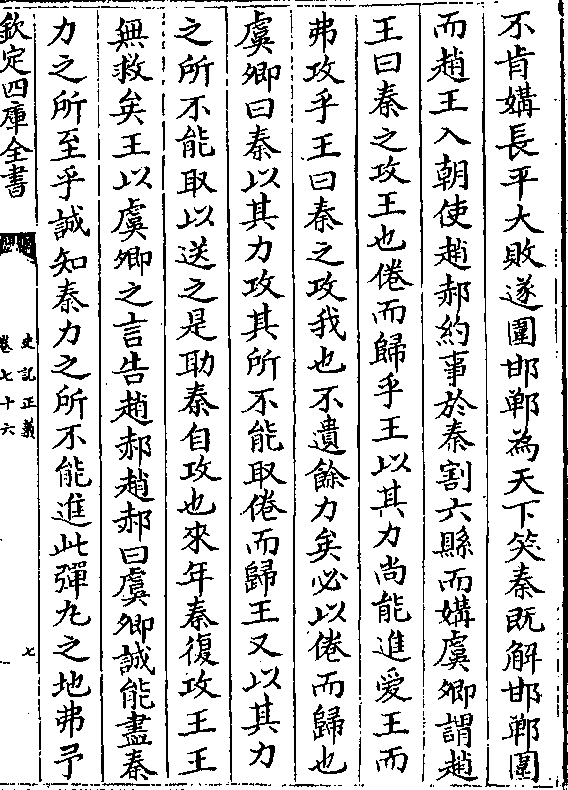 不肯媾長平大敗遂圍邯鄲為天下笑秦既解邯鄲圍
而趙王入朝使趙郝約事於秦割六縣而媾虞卿謂趙
王曰秦之攻王也倦而歸乎王以其力尚能進愛王而
弗攻乎王曰秦之攻我也不遺餘力矣必以倦而歸也
虞卿曰秦以其力攻其所不能取倦而歸王又以其力
之所不能取以送之是助秦自攻也來年秦復攻王王
無救矣王以虞卿之言告趙郝趙郝曰虞卿誠能盡秦
力之所至乎誠知秦力之所不能進此彈丸之地弗予
欽定四庫全書
史記正義
卷七十六
七